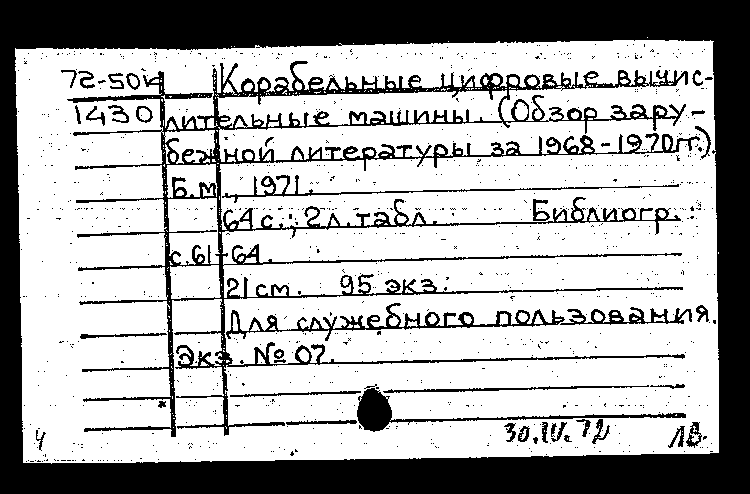 72-50и Корабельные цифровые вычис-
1430 лительные машины. (Обзор зару-
бежной литературы за 1968-1970гг.).
Б.м., 1971.
64 с.; 2 л. табл. Библиогр.:
с. 61-64.
21 см. 95 экз.
Для служебного пользования.
Экз. № 07.
30.IV.72 ЛВ.
Ч